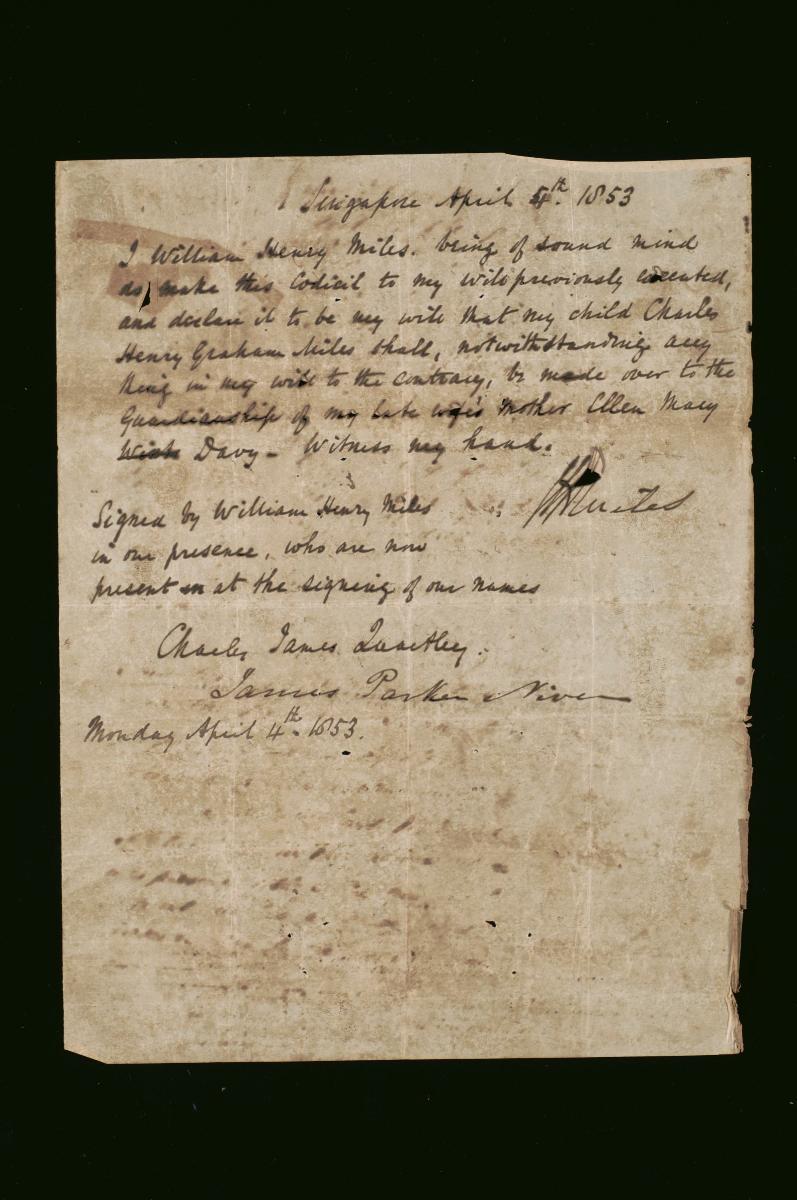 Singapore April 4th. 1853
I William Henry Miles. being of sound mind
do make this Codicil to my Will previously executed,
and declare it to be my will that my child Charles
Henry Graham Miles shall, notwithstanding any
thing in my will to the contrary, be made over to the
Guardianship of my late wife's Mother Ellen Mary
Davy - Witness my hand.
Signed by William Henry Miles
WHMiles
in our presence, who are now
present at the signing of our names
Charles James
James Parker Niven
Monday April 4th. 1853.